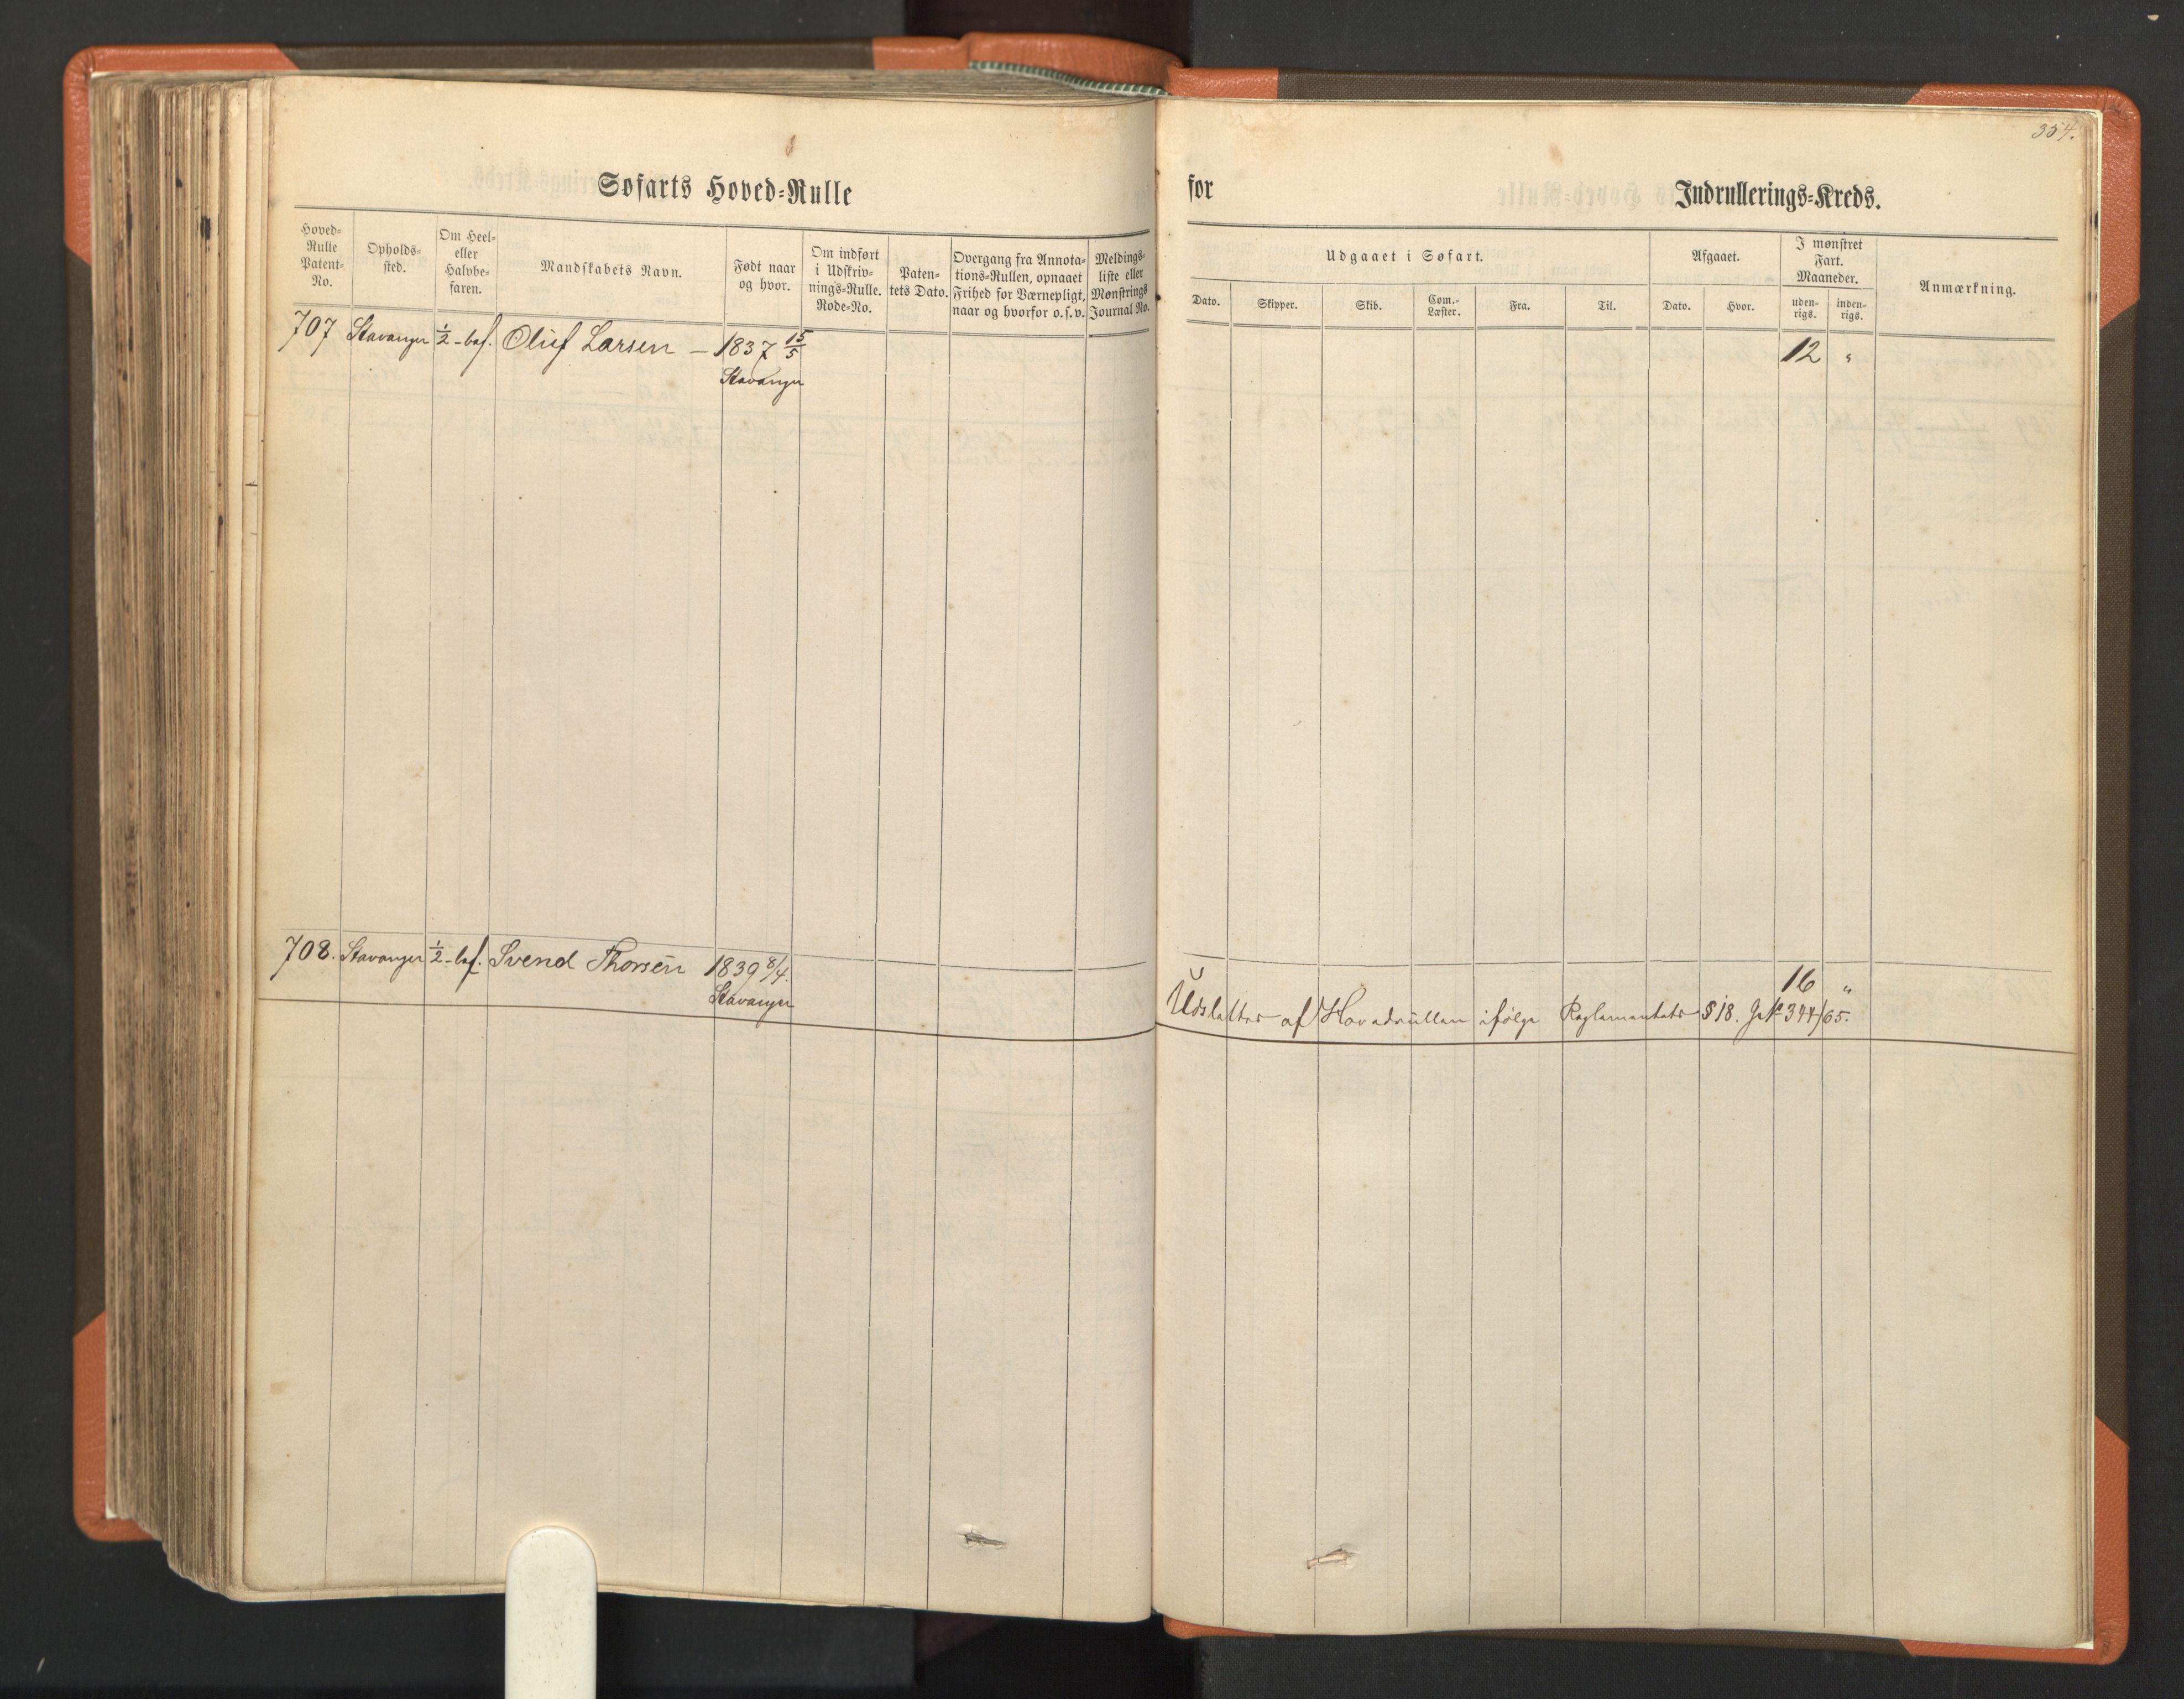 354.
Søfarts Hoved=Rulle for Indrullerings=Kreds.
Hoved=
Rulle
Patent=
No.
Opholds=
sted.
Om Heel=
eller
Halvbe=
faren.
Mandskabets Navn.
Født naar
og hvor.
Om indført
i Udskriv=
nings=Rulle.
Rode=No.
Paten=
tets Dato.
Overgang fra Annota=
tions=Rullen, opnaaet
Frihed for Værnepligt,
naar og hvorfor o.s.v.
Meldings=
liste eller
Mønstrings
Journal No.
Udgaaet i Søfart.
Dato.
Skipper.
Skib.
Com.=
Læster.
Fra.
Til.
Afgaaet.
Dato.
Hvor.
I mønstret
Fart.
Maaneder.
uden=
rigs.
inden=
rigs.
Anmærkning.
707 Stavanger ½-bef. Oluf Larsen — 1837 15/5 12 "
Stavanger
708. Stavanger ½-bef. Svend Thorsen 1839 8/4. 16 "
Stavanger
Udslettes af Hovedrullen ifølge Reglementets § 18. J No 344/65.